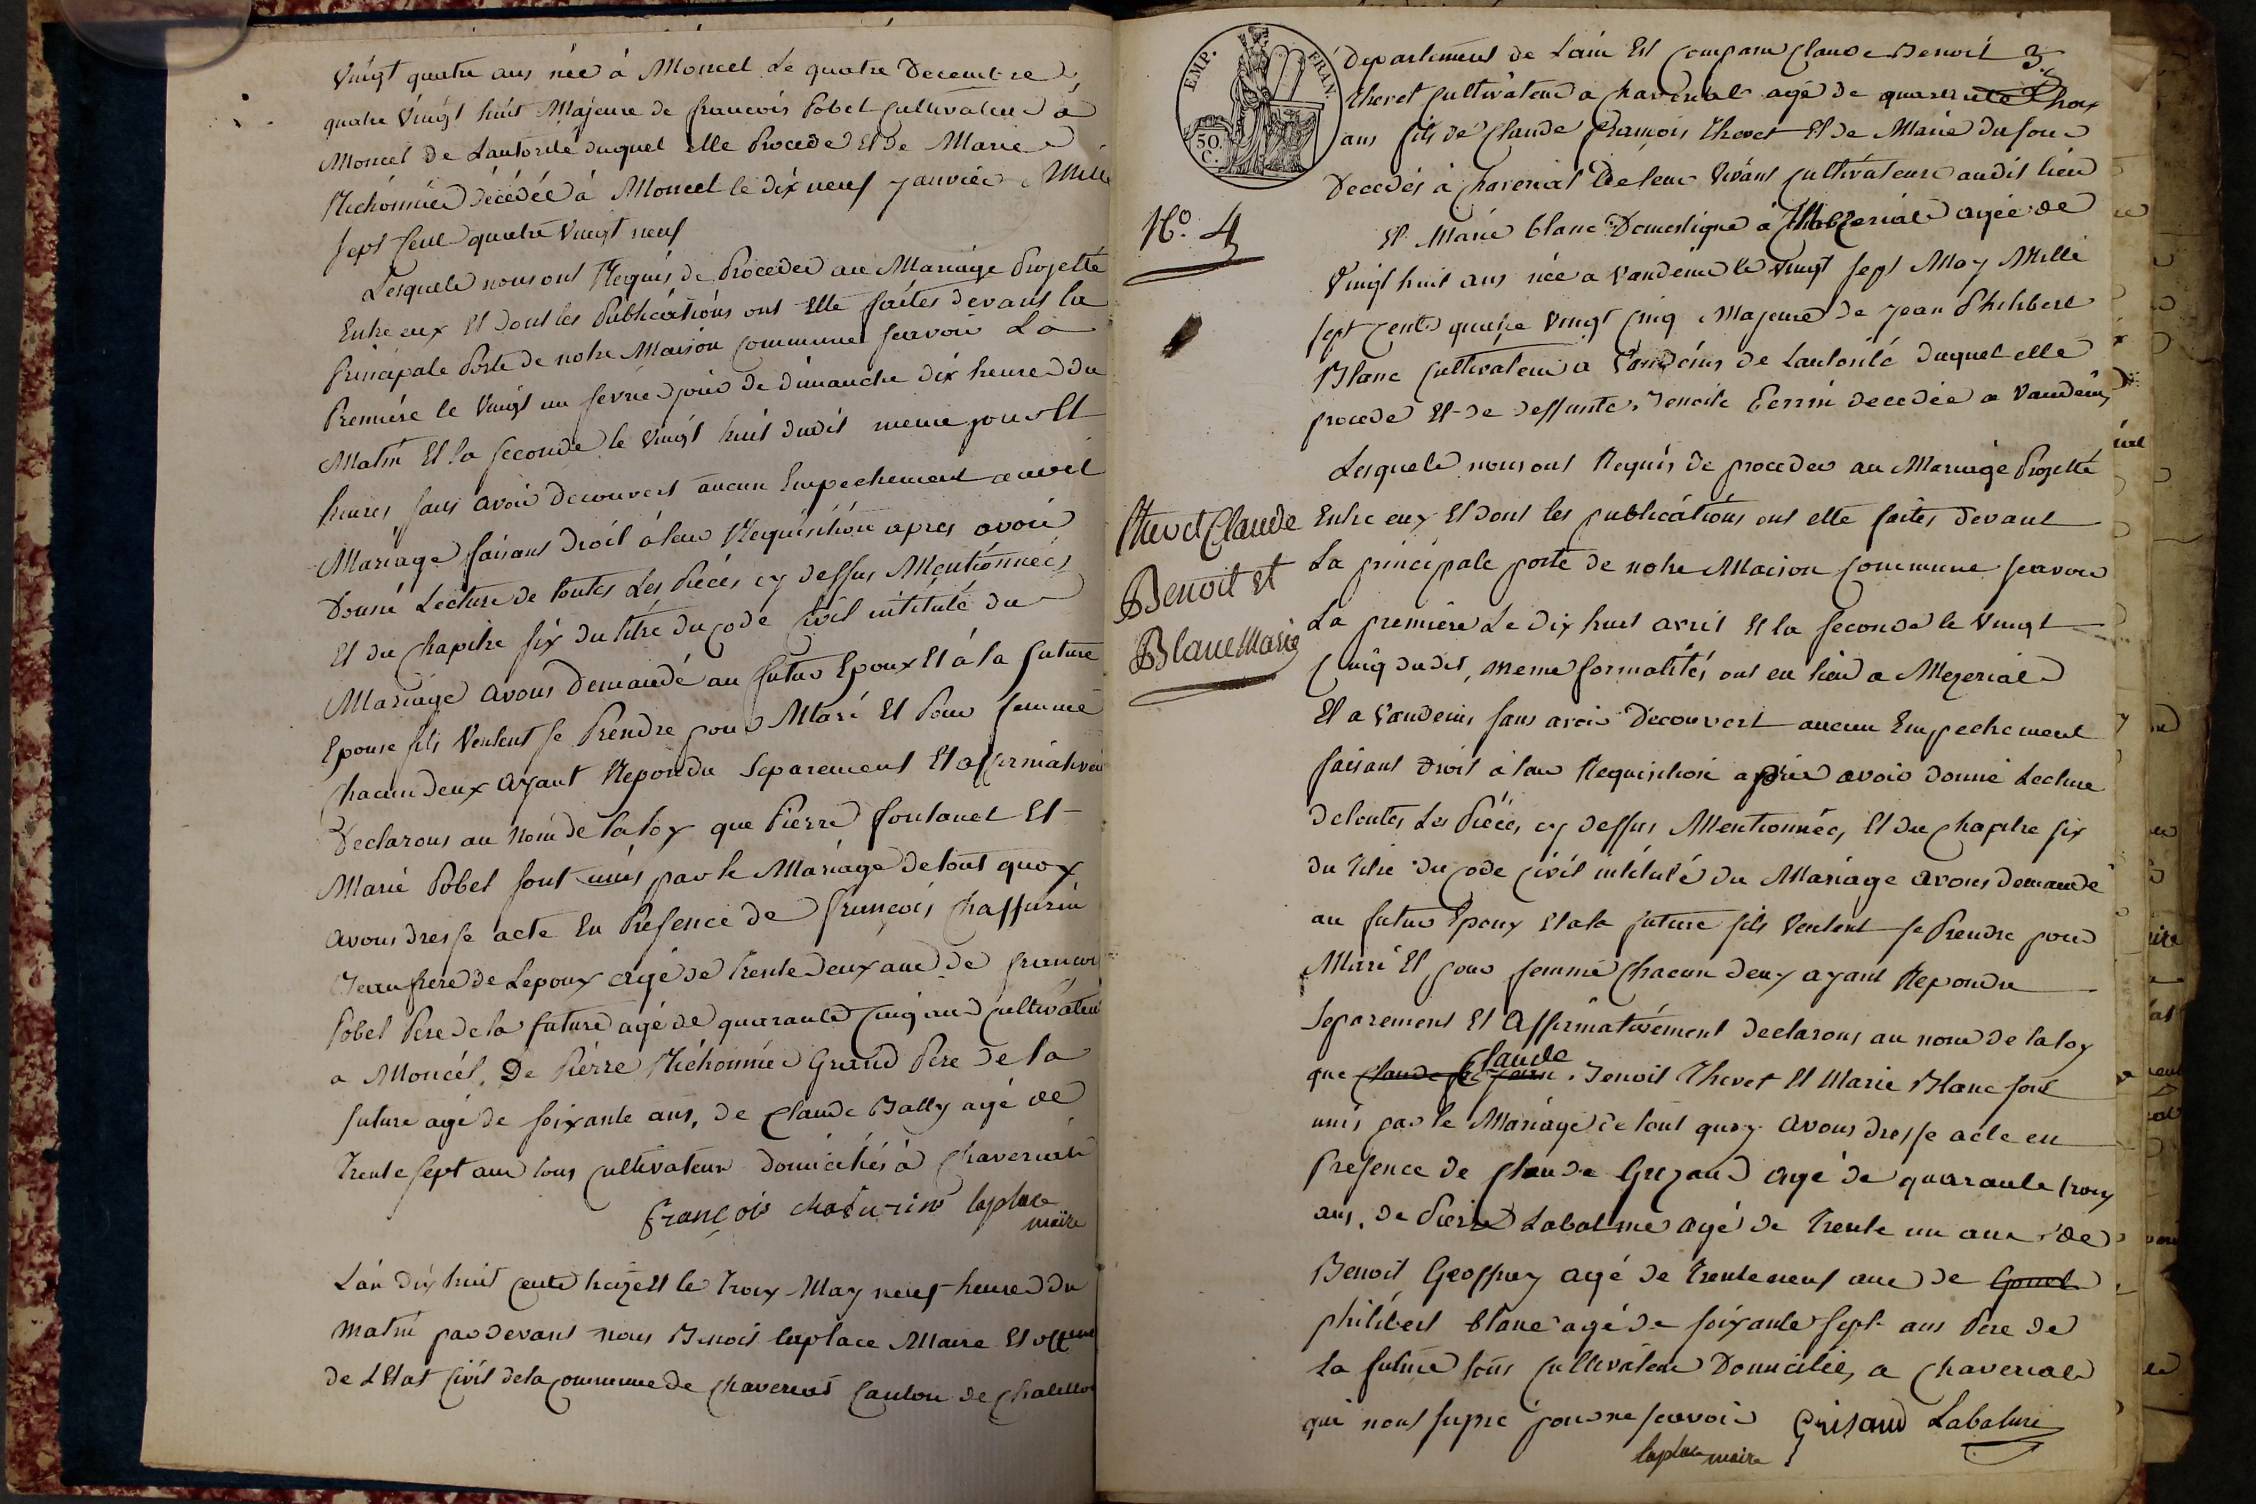 Vingt quatre ans née à Moncel Le quatre Decembre
quatre Vingt huit Majeure de francois Pobel Cultivateur à
Moncel de Lautorité duquel elle Procede Et de Marie
Michonnier décédée à Moncel le dix neuf Janvier Mille
sept Cent quatre Vingt neuf
Lesquels nous ont Requis de Proceder au Mariage Projetté
Entre eux Et dont les Publications ont Etté faites devant la
Principale Porte de notre Maison Commune scavoir La
Premiere le Vingt un fevrier jour de dimanche dix heures du
Matin Et la seconde le Vingt huit dudit meme jour Et
heures, sans avoir decouvert aucun Empechement audit
Mariage faisant droit à leur Requisition apres avoir
Donné Lecture de toutes Les Piéces cy dessus Mentionnées
Et du Chapitre six du titre du Code Civil intitulé du
Mariage avons demandé au futur Epoux Et à la future
Epouse sils Veulent se Prendre pour Mari Et Pour femme
Chacun deux ayant Repondu Separement Et affirmativen
Declarons au Nom de la loy que Pierre fontanel Et
Marie Pobel sont unis par le Mariage de tout quoy
avons dresse acte En Presence de françois Chaffurin
Jean frere de Lepoux agé de trente deux ans de francois
Pobel Pere de la future agé de quarante Cinq ans Cultivateur
a Moncél, De Piérre Michonnier Grand Pere de la
future agé de soixante ans, de Claude Bally agé de
trente sept ans tous Cultivateurs domiciliés à Chaveriat
françois chafurin laplace
maire
L'an dix huit Cent treize Et le trois May neuf heures du
matin par devant Nous Benoit laplace Maire Et officier
de L'Etat Civil de la Commune de Chaveriat Canton de Chatillon
EMP. FRAN.
50.
C.
departement de Lain Est Comparu Claude Benoit 3
thevet Cultivateur a Chaveriat agé de quarante trois
ans fils de Claude François thevet Et de Marie dufour
Decedés à Chaveriat De leur Vivant Cultivateurs audit lieu
Nº. 4
Et Marie blanc Domestique à Mezeriat agée de
Vingt huit ans née a Vandeins le Vingt sept May Mille
sept Cents quatre Vingt Cinq Majeure de Jean Philibert
Blanc Cultivateur a Vandeins de Lautorité duquel elle
procede Et de deffunte Benoite decedée a Vandeins
Lesquels nous ont Requis de proceder au Mariage Projetté
thevet Claude
Benoit et
Blanc Marie
Entre eux Et dont les publications ont etté faites devant
La principale porte de notre Maison Commune scavoir
La premiere Le dix huit avril Et la seconde le Vingt
Cinq dudit, meme formalités ont eu lieu a Mezeriat
Et a Vandeins sans avoir Decouvert aucun Empechement
faisant droit à leur Requisition aprés avoir donné Lecture
de toutes Les Piéces, cy dessus Mentionnées, Et du Chapitre six
du titre du Code Civil intitulé du Mariage avons demandé
au futur Epoux Et a la future sils Veulent se Prendre pour
Mari Et pour femme Chacun deux ayant Repondu
Separement Et Affirmativement declarons au nom de la loy
que Claude Benoit Thevet Et Marie Blanc sont
unis par le Mariage de tout quoy avons dresse acte en
presence de Claude Grizaud agé de quarante trois
ans, de Pierre Labalme agé de trente un ans de
Benoit Geoffray agé de trente neuf ans de
philibert blanc agé de soixante sept ans Pere de
La future tous Cultivateurs Domiciliés a Chaveriat
qui nont signé pour ne scavoir Grisaud Labalme
laplace maire